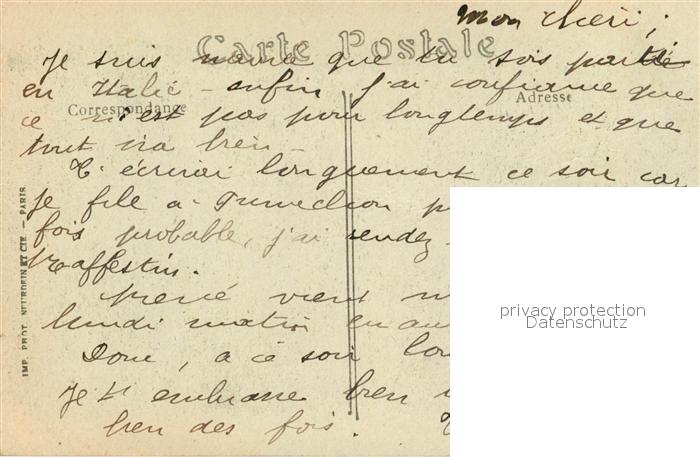 Mon chéri,
Carte Postale
Je suis navré que tu sois parti
en Italie - enfin j'ai confiance que
Correspondance
Adresse
ce n'est pas pour longtemps et que
tout ira bien -
T'écrirai longuement ce soir car
Je file à
fois probable, j'ai rendez-
vient
lundi matin
Donc, à ce soir
Je t'embrasse bien
bien des fois.
privacy protection
Datenschutz
IMP. PHOT. NEURDEIN ET CIE. — PARIS.